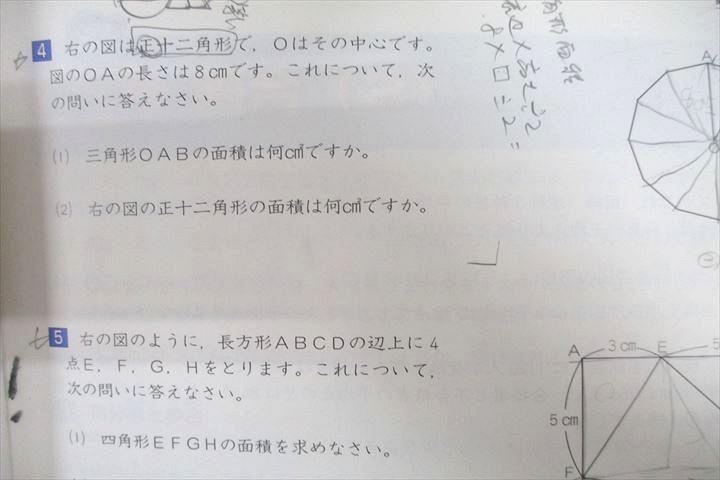 4 右の図は正十二角形で，Ｏはその中心です。
図のＯＡの長さは８cmです。これについて，次
の問いに答えなさい。
⑴ 三角形ＯＡＢの面積は何cm²ですか。
⑵ 右の図の正十二角形の面積は何cm²ですか。
A
8cm
O
8×□÷2=
5 右の図のように，長方形ＡＢＣＤの辺上に４
点Ｅ，Ｆ，Ｇ，Ｈをとります。これについて，
次の問いに答えなさい。
⑴ 四角形ＥＦＧＨの面積を求めなさい。
A 3cm E 5
5cm
F